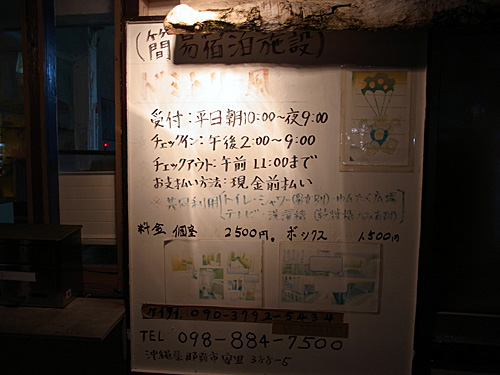 (簡易宿泊施設)
受付:平日朝10:00～夜9:00
チェックイン:午後2:00～9:00
チェックアウト:午前11:00まで
お支払い方法:現金前払い
※共同利用 トイレ・シャワー(男女別)・ゆんたく広場
テレビ・洗濯機
料金 個室 2500円。ボックス 1,500円
ケイタイ 090-3792-5434
TEL 098-884-7500
沖縄県那覇市安里388-5